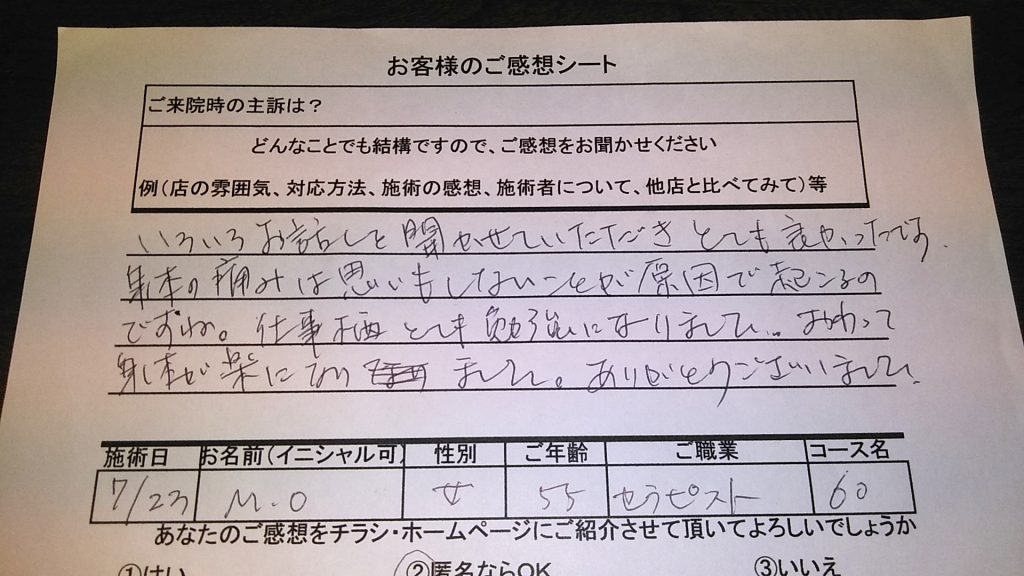 お客様のご感想シート
ご来院時の主訴は？
どんなことでも結構ですので、ご感想をお聞かせください
例（店の雰囲気、対応方法、施術の感想、施術者について、他店と比べてみて）等
いろいろお話しを聞かせていただき とても良かったです.
身体の痛みは思いもしないことが原因で起こるの
ですね。仕事柄 とても勉強になりました。おわって
身体が楽になり ました。ありがとうございました
施術日 お名前（イニシャル可） 性別 ご年齢 ご職業 コース名
7/23 M.O 女 55 セラピスト 60
あなたのご感想をチラシ・ホームページにご紹介させて頂いてよろしいでしょうか
①はい ②匿名ならOK ③いいえ